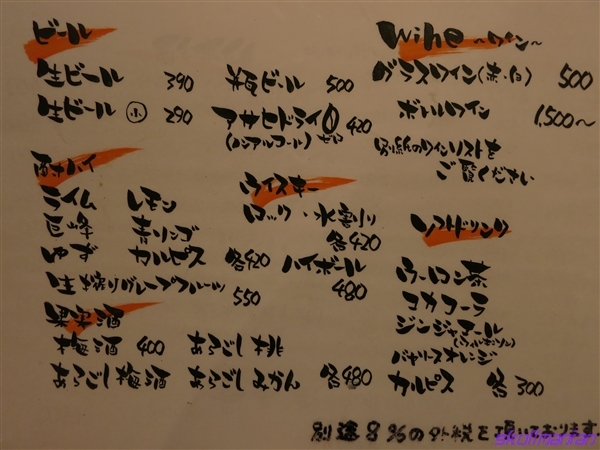 ビール
生ビール 390
生ビール 小 290
瓶ビール 500
アサヒドライ0 420
(ノンアルコール) ゼロ
酎ハイ
ライム レモン
巨峰 青リンゴ
ゆず カルピス 各420
生搾りグレープフルーツ 550
ウイスキー
ロック・水割り
各420
ハイボール
480
果実酒
梅酒 400 あらごし桃
あらごし梅酒 あらごしみかん 各480
wine 〜ワイン〜
グラスワイン(赤・白) 500
ボトルワイン
1,500〜
別紙のワインリストを
ご覧ください
ソフトドリンク
ウーロン茶
コカコーラ
ジンジャエール
バヤリースオレンジ
カルピス 各300
別途8%の外税を頂いております。